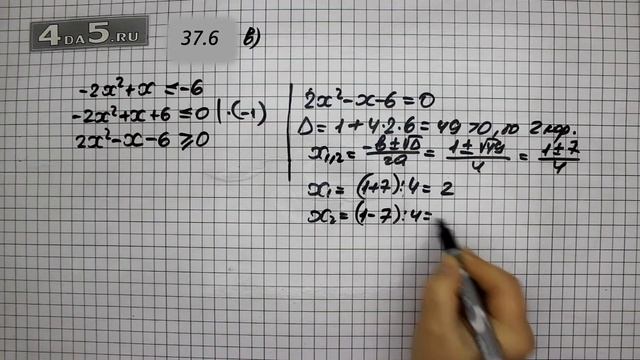 4DA5.RU
37.6 в)
-2x²+x ≤ -6
-2x²+x+6 ≤ 0 | ·(-1)
2x²-x-6 ≥ 0
2x²-x-6=0
D = 1+4·2·6 = 49 > 0, то 2 кор.
x₁,₂ = (-b±√D)/2a = (1±√49)/4 = (1±7)/4
x₁ = (1+7):4 = 2
x₂ = (1-7):4 =